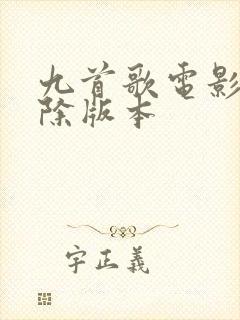 九首歌電影
除版本
字正義